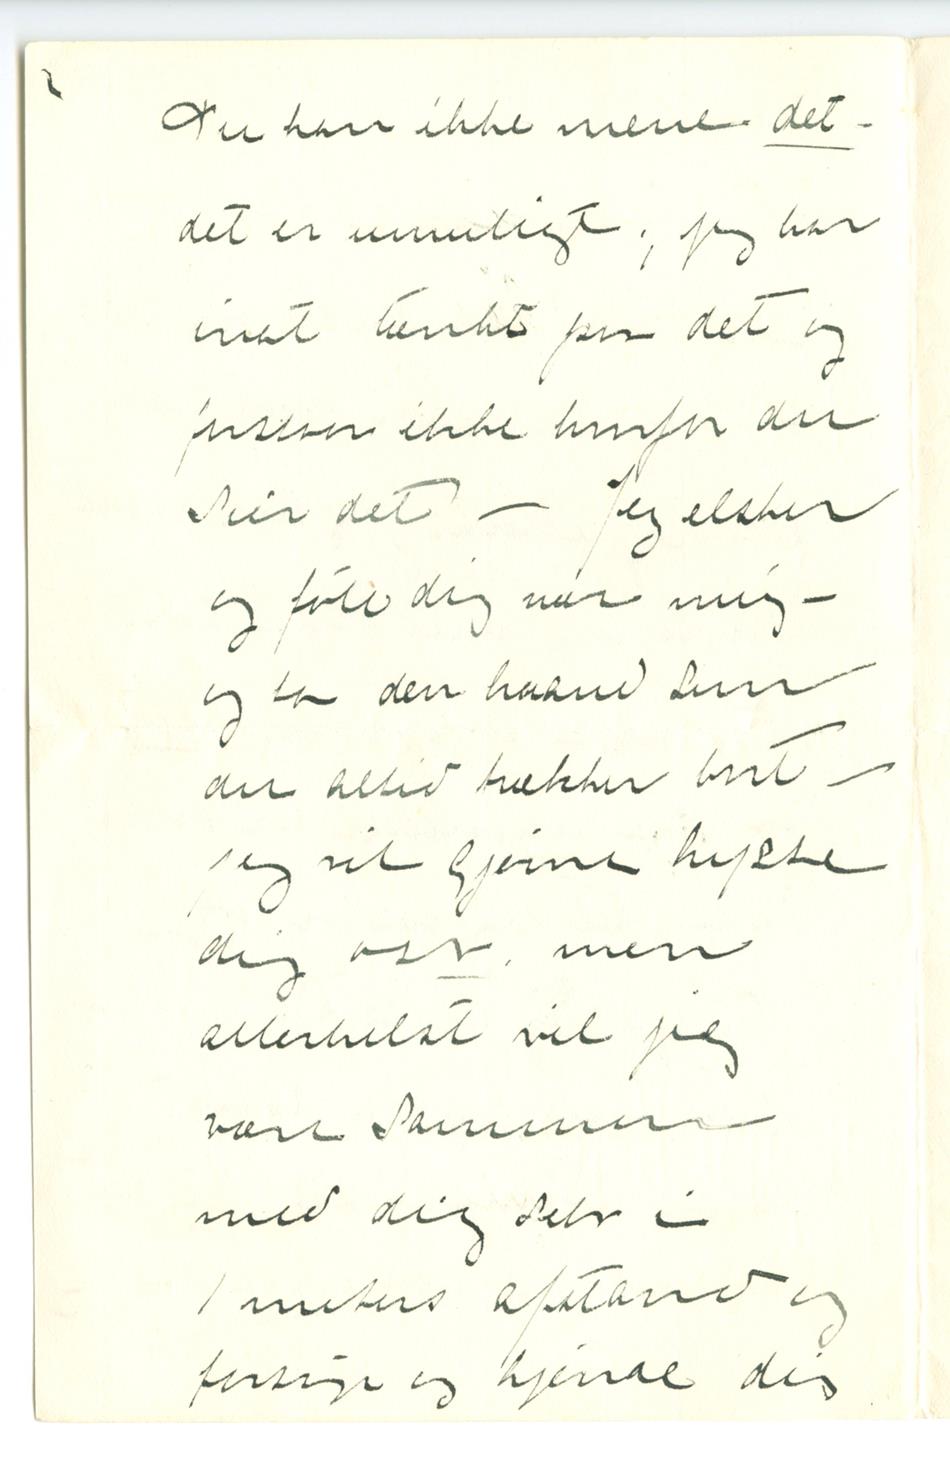 Du kan ikke mene det –
det er umuligt; jeg har
inat tænkt paa det og
forstaar ikke hvorfor du
sier det — Jeg elsker
og føle dig nær mig –
og ta den haand som
du altid trækker bort –
jeg vil gjerne kysse
dig osv. men
allerhelst vil jeg
være sammen
med dig selv i
1 meters afstand og
forsøge og kjende dig